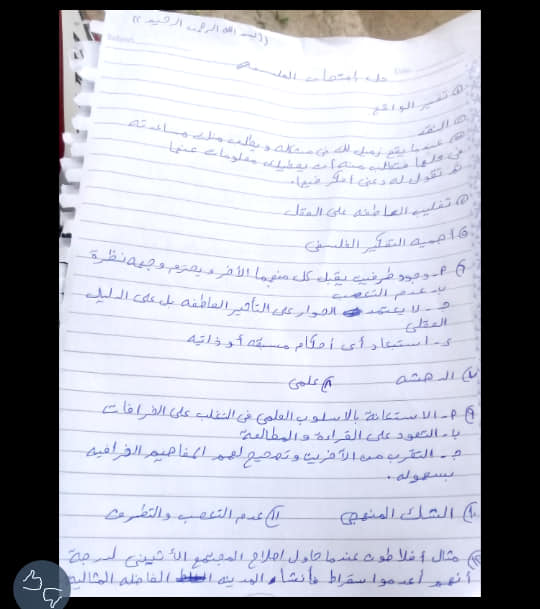 ((بسم الله الرحمن الرحيم))
حل امتحان الفلسفة
① تفسير الواقع
② النقد
③ عندما يقع زميل لك فى مشكله ويطلب منك مساعدته
فى حلها فتطلب منه أن يعطيك معلومات عنها
ثم تقول له دعنى أفكر فيها.
④ تغليب العاطفه على العقل
⑤ أهمية التفكير الفلسفى
⑥ أ- وجود طرفين يقبل كل منهما الآخر ويحترم وجهه نظرة
ب- عدم التعصب
ج- لا يعتمد الحوار على التأثير العاطفه بل على الدليل
العقلى
د- استبعاد أى أحكام مسبقه أو ذاتيه
⑦ الدهشه ⑧ علمى
⑨ أ- الاستعانة بالاسلوب العلمى فى التغلب على الخرافات
ب- التعود على القراءة والمطالعة
ج- التقرب من الآخرين وتصحيح لهم المفاهيم الخرافيه
بسهوله.
⑩ الشك المنهجى ⑪ عدم التعصب والتطرف
⑫ مثال أفلاطون عندما حاول إصلاح المجتمع الأثينى لدرجة
أنهم أعدموا سقراط فأنشاء المدينه الفاضله المثاليه